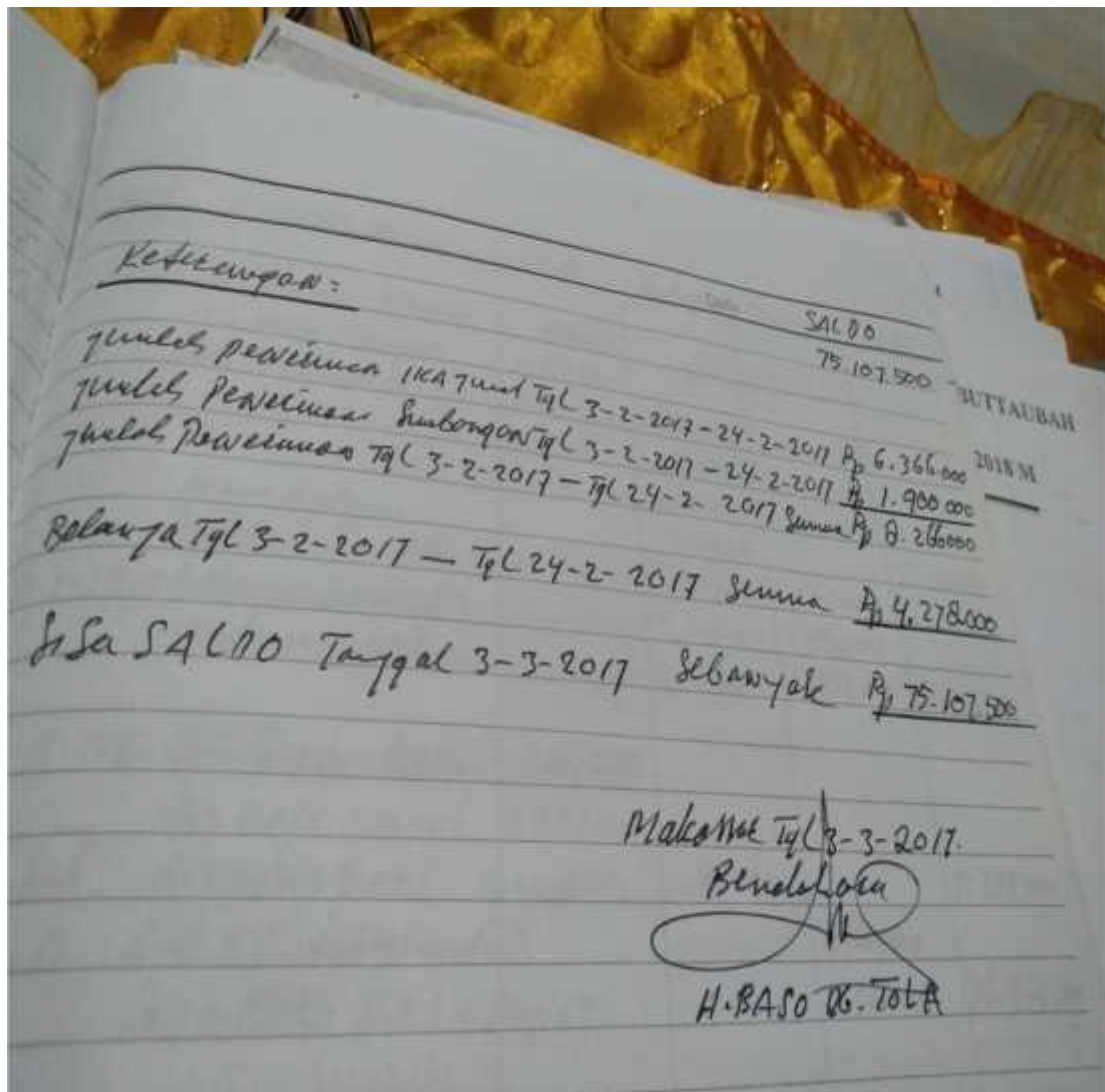 Keterangan:
SALDO
75.107.500
Jumlah Penerimaan Tgl 3-2-2017-24-2-2017 Rp 6.366.000
Jumlah Penerimaan Sumbangan Tgl 3-2-2017-24-2-2017 Rp 1.900.000
Jumlah Penerimaan Tgl 3-2-2017 – Tgl 24-2-2017 Semua Rp 8.266000
Belanja Tgl 3-2-2017 – Tgl 24-2-2017 Semua Rp 4.278.000
Sisa SALDO Tanggal 3-3-2017 Sebanyak Rp 75.107.500
Makassar Tgl 3-3-2017.
Bendahara
H.BASO DG. TOLA
BUTTAUBAH
2018 M